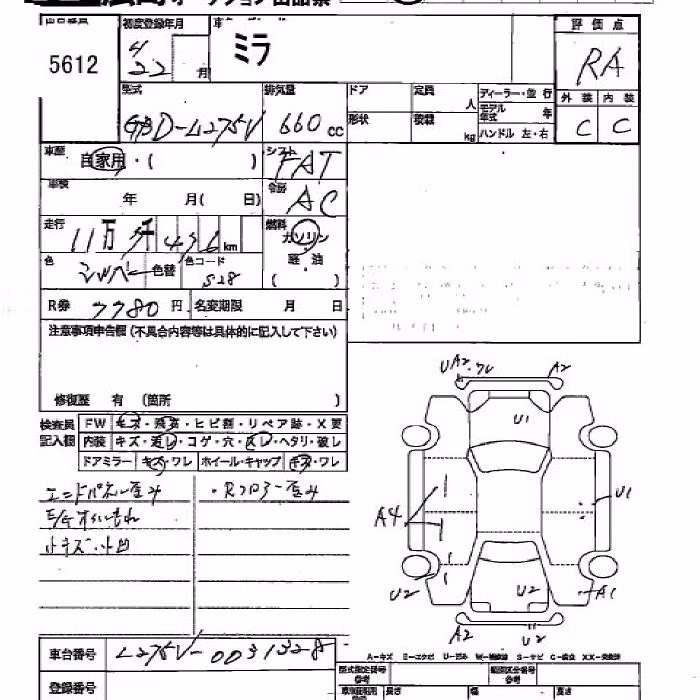 オークション出品票
5612
初度登録年月
4/22 月
ミラ
評価点
RA
外装 内装
C C
型式
GBD-L275V
排気量
660 cc
ドア
定員
人
ディーラー・並行
モデル年式
年
形状
積載
kg
ハンドル 左・右
車歴
自家用・( )
シフト
FAT
車検
年 月( 日)
冷房
AC
走行
11万 km
燃料
ガソリン
軽油
( )
色
シルバー
色替
色コード
S28
R券 7780 円
名変期限 月 日
注意事項申告欄(不具合内容等は具体的に記入して下さい)
修復歴 有 (箇所 )
検査員記入欄
FW キズ・飛石・ヒビ割・リペア跡・X要
内装 キズ・汚レ・コゲ・穴・スレ・ヘタリ・破レ
ドアミラー キズ・ワレ ホイール・キャップ キズ・ワレ
エンドパネル歪み
・Rフロアー歪み
E/Gオイルもれ
小キズ・小凹
UA2・ワレ
A2
U1
U1
A4
U2
U2
A1
A2
U2
A-キズ
車台番号 L275V-0031328
登録番号
型式指定番号
参考
類別区分番号
参考
長さ
幅
高さ